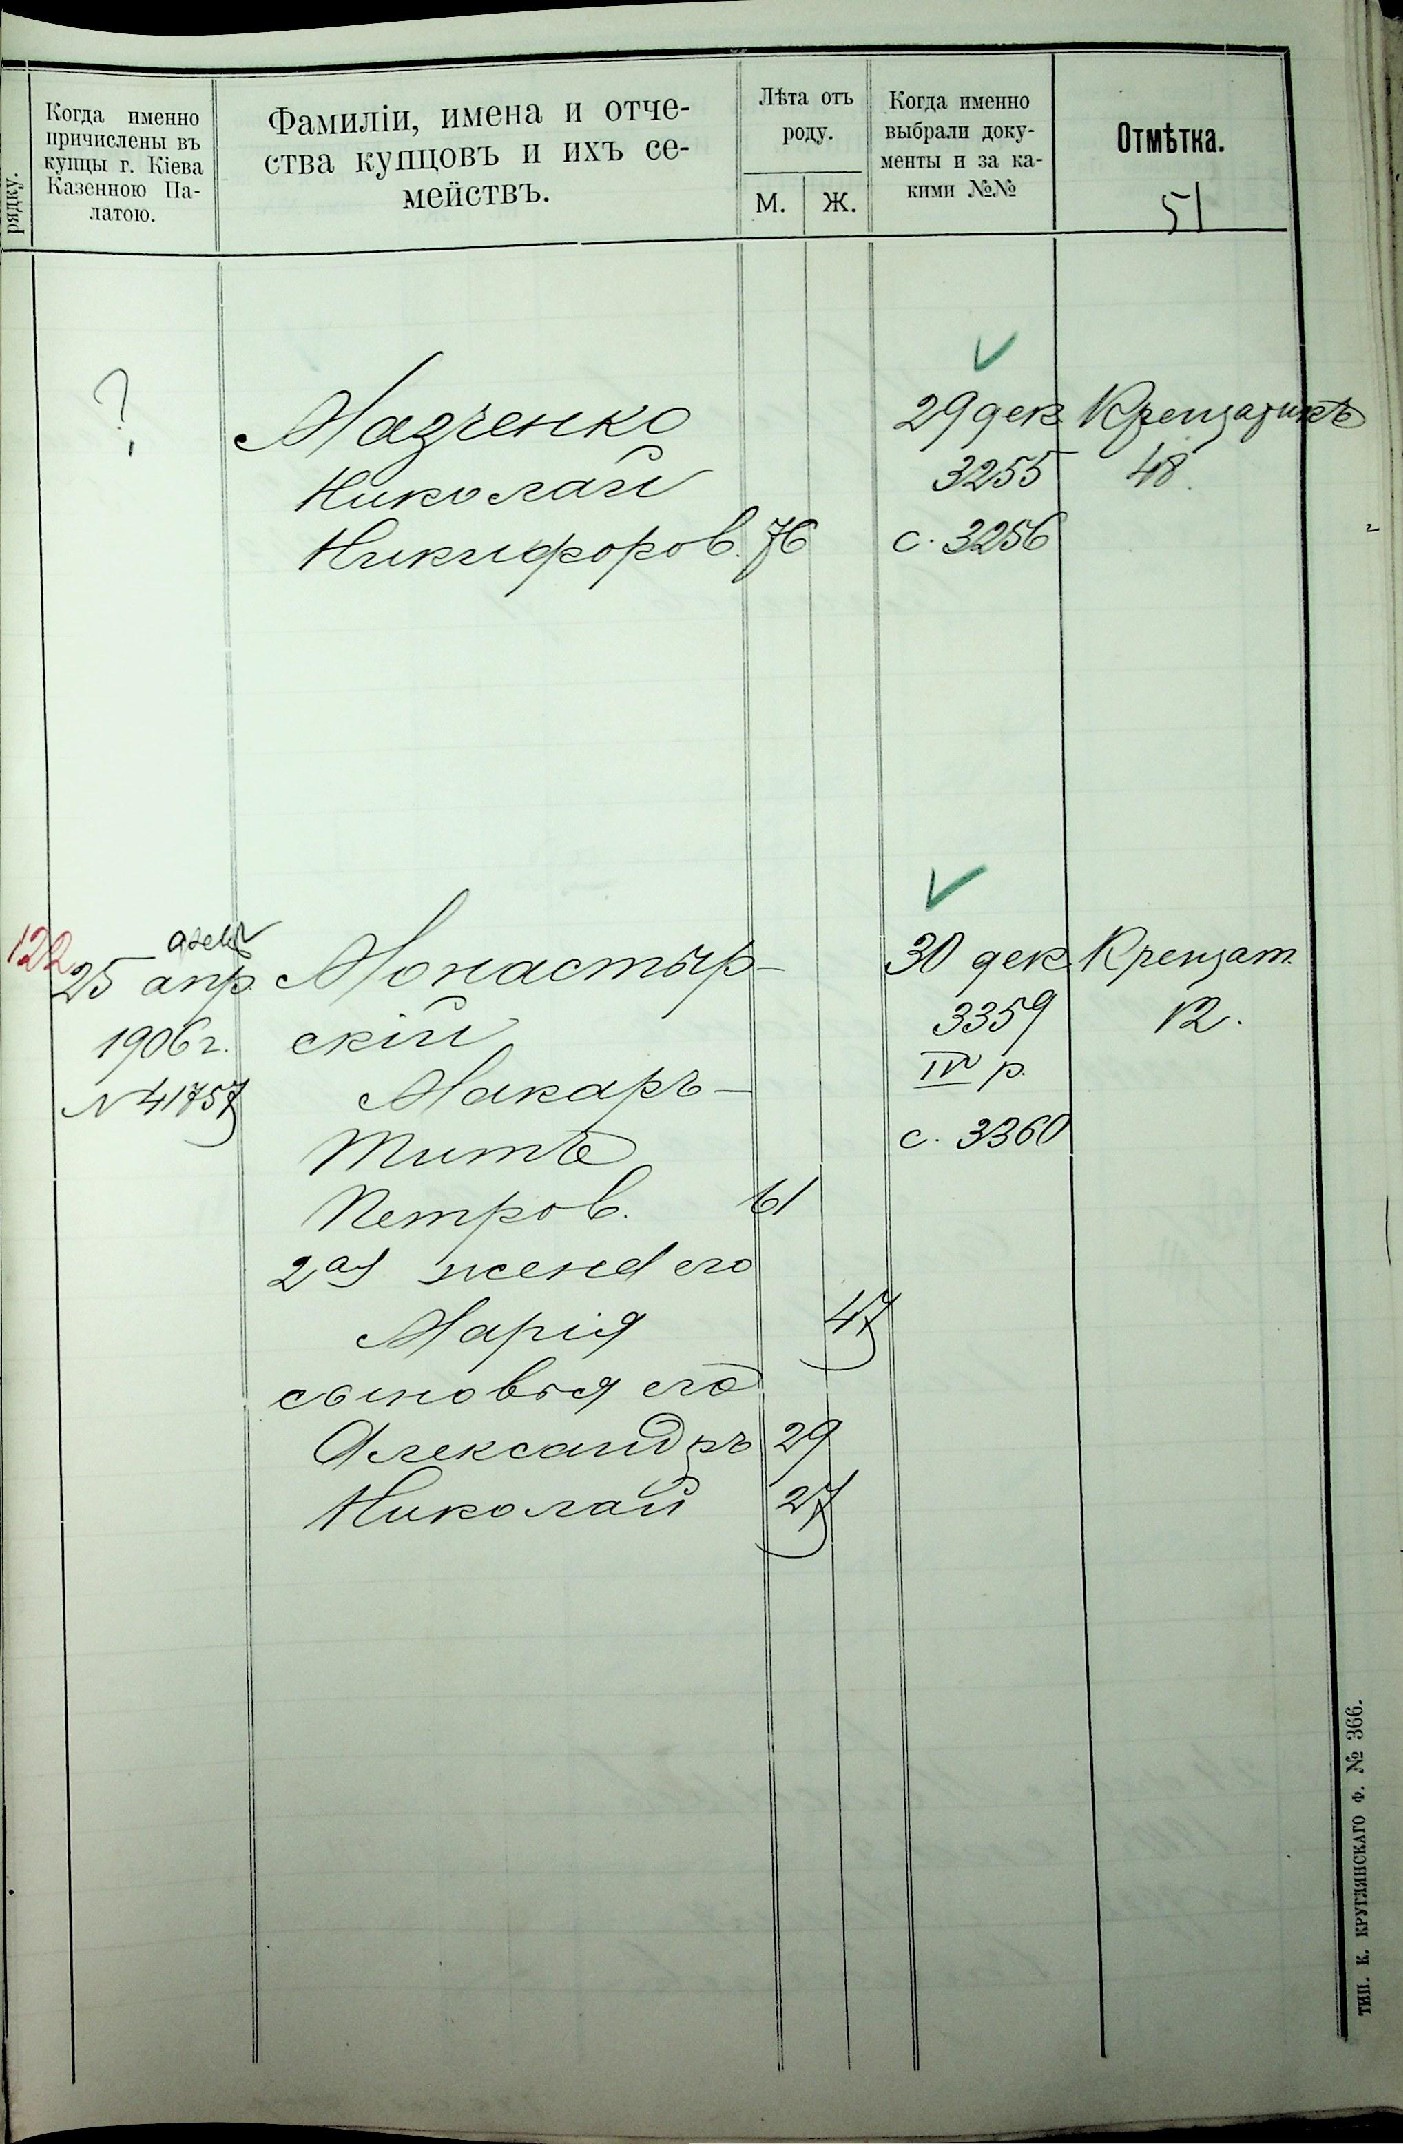 рядку.
Когда именно
причислены въ
купцы г. Кіева
Казенною Па-
латою.
Фамиліи, имена и отче-
ства купцовъ и ихъ се-
мействъ.
Лѣта отъ
роду.
М. Ж.
Когда именно
выбрали доку-
менты и за ка-
кими №№
Отмѣтка.
51
?
Мазченко
Николай
Никифоров. 76
29 дек.
3255
с. 3256
Крещатикъ
48.
122
25 апр.
1906 г.
№ 41757
Монастыр-
скій
Макаръ-
Титъ
Петров. 61
2ая жена его
Марія 47
сыновья его
Александръ 29
Николай 27
30 дек.
3359
IV р.
с. 3360
Крещат.
12.
ТИП. К. КРУГЛЯНСКАГО Ф. № 366.